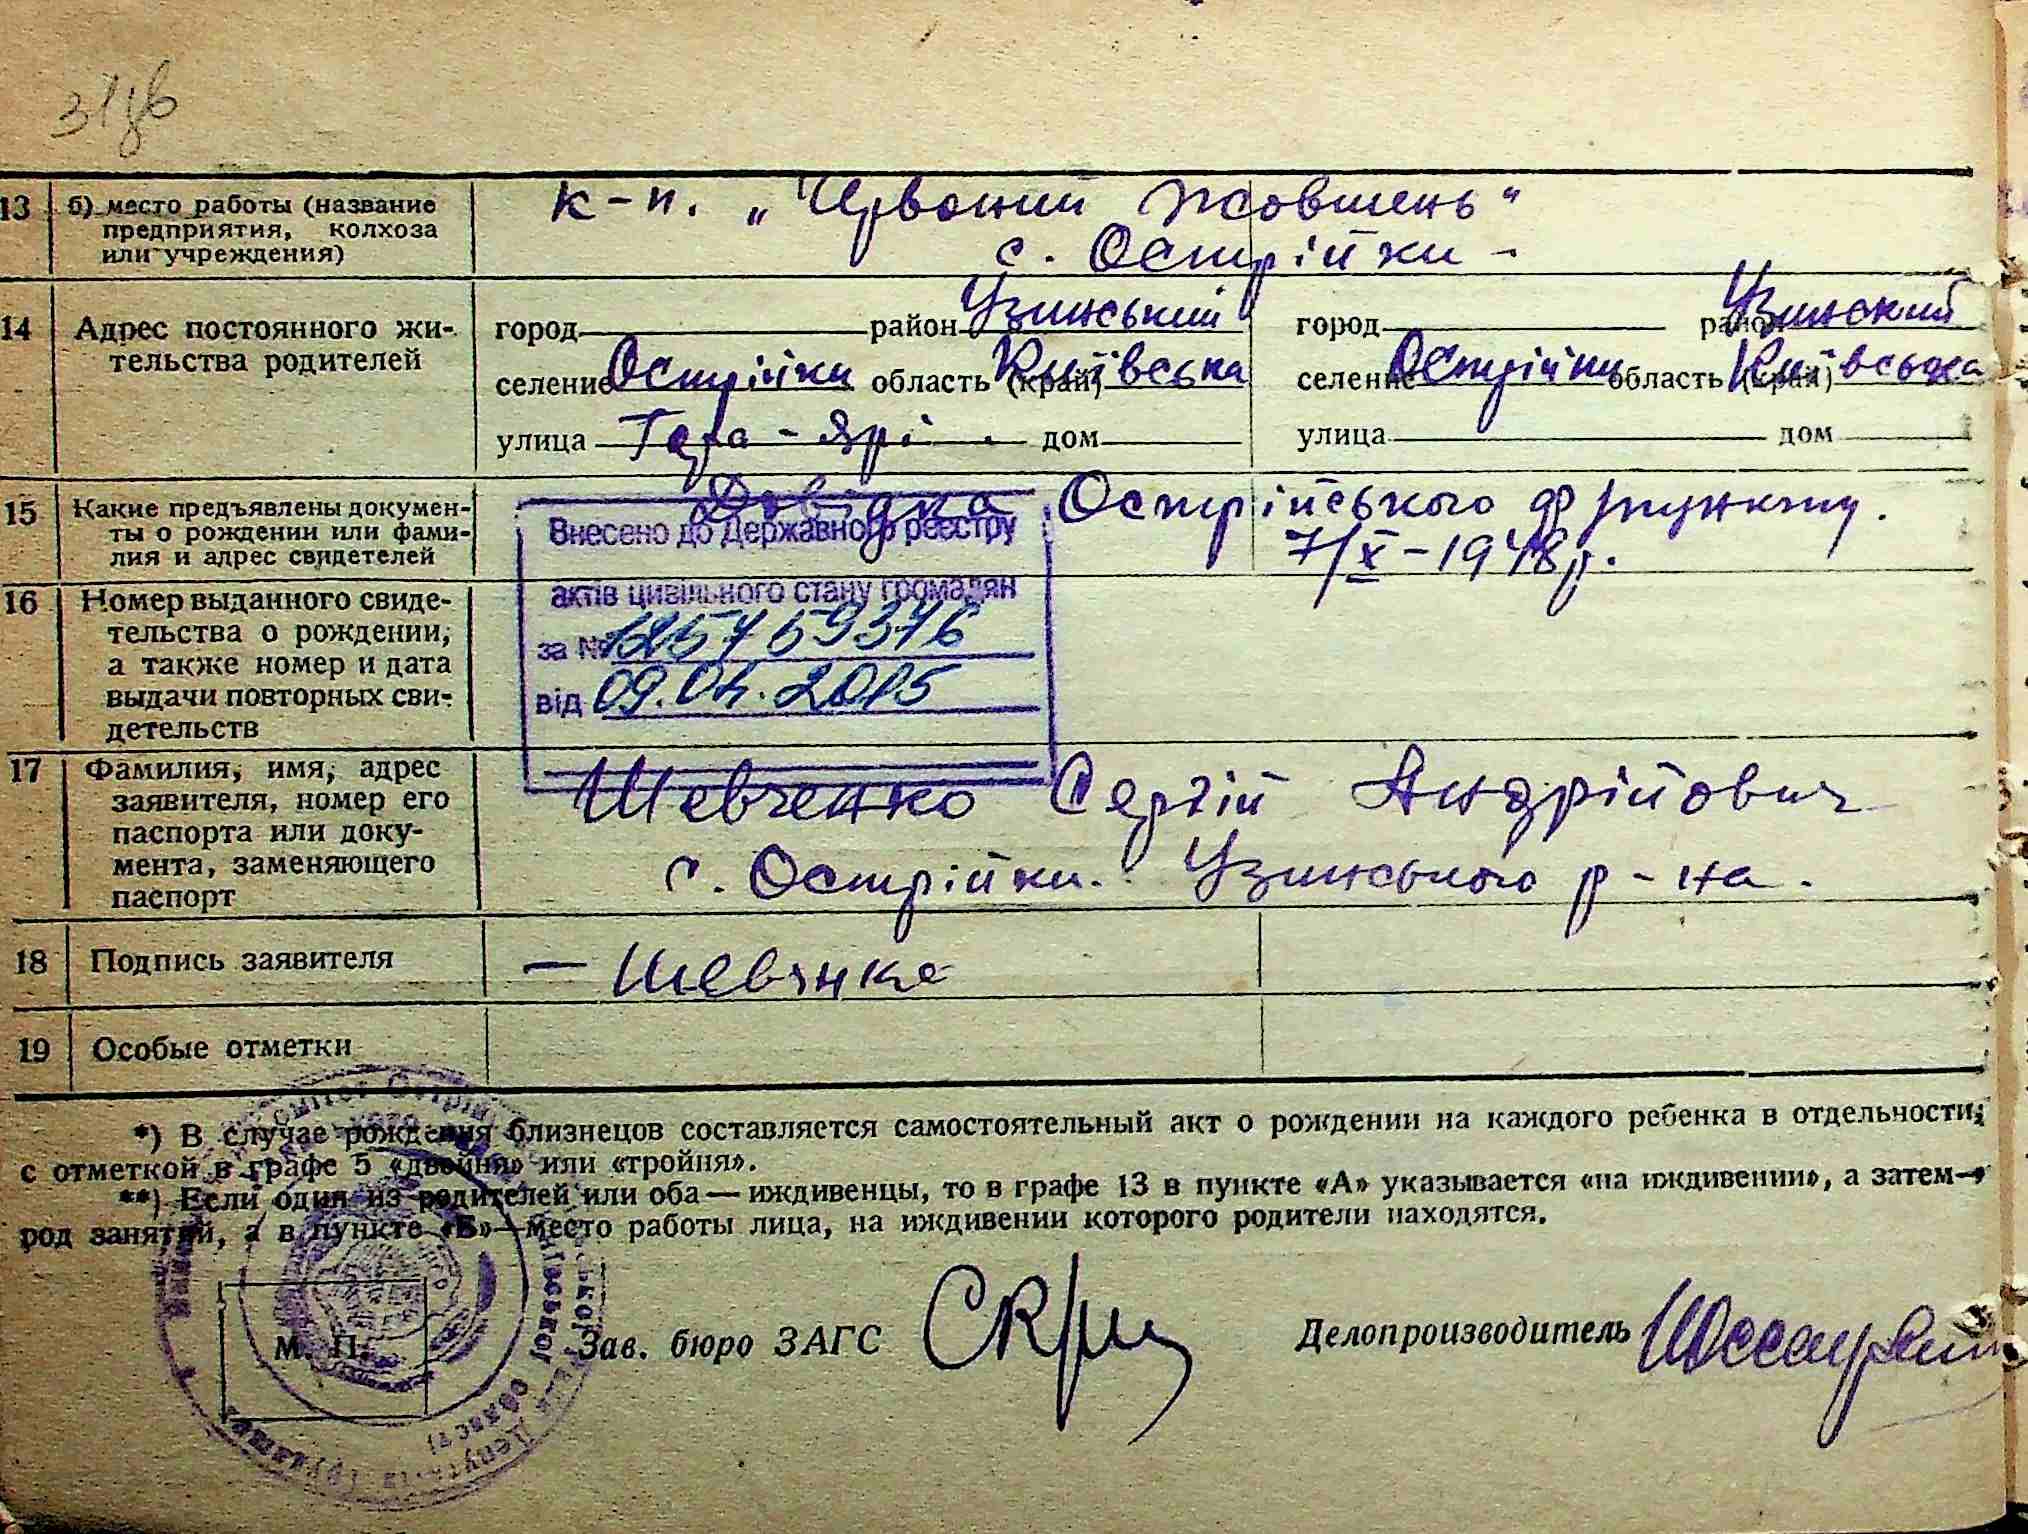 13 б) место работы (название
предприятия, колхоза
или учреждения)
к-п. „Червоний Жовтень"
с. Острійки -
14 Адрес постоянного жи-
тельства родителей
город район Узинський
селение Острійки область (край) Київська
улица Гора - Ярі дом
город район Узинский
селение Острійки область (край) Київська
улица дом
15 Какие предъявлены докумен-
ты о рождении или фами-
лия и адрес свидетелей
Довідка Острійського фпункту.
7/X-1948р.
16 Номер выданного свиде-
тельства о рождении,
а также номер и дата
выдачи повторных сви-
детельств
Внесено до Державного реєстру
актів цивільного стану громадян
за №
від 09.04.2015
17 Фамилия, имя, адрес
заявителя, номер его
паспорта или доку-
мента, заменяющего
паспорт
Шевченко Сергій Андрійович
с. Острійки. Узинського р-на.
18 Подпись заявителя
— Шевчнко
19 Особые отметки
*) В случае рождения близнецов составляется самостоятельный акт о рождении на каждого ребенка в отдельности,
с отметкой в графе 5 «двойня» или «тройня».
**) Если один из родителей или оба — иждивенцы, то в графе 13 в пункте «А» указывается «на иждивении», а затем—
род занятий, а в пункте «Б»—место работы лица, на иждивении которого родители находятся.
М. П.
Зав. бюро ЗАГС
Делопроизводитель